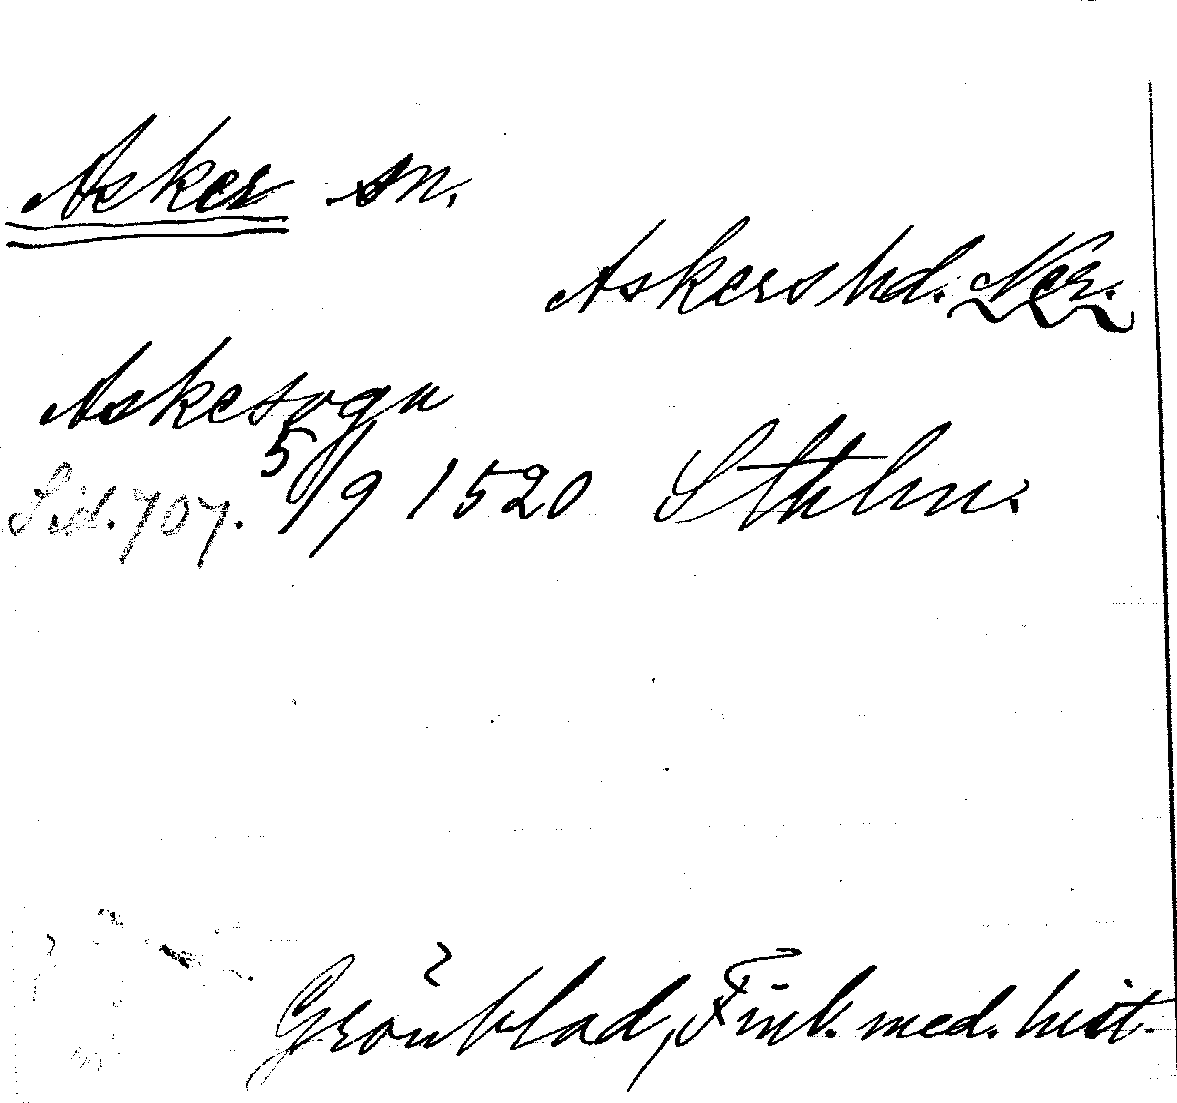 Asker sn.
Askers hd. Ner.
Askesogn
Sid. 707. 5/9 1520 Sthlm.
Grönblad, Finl. med. hist.